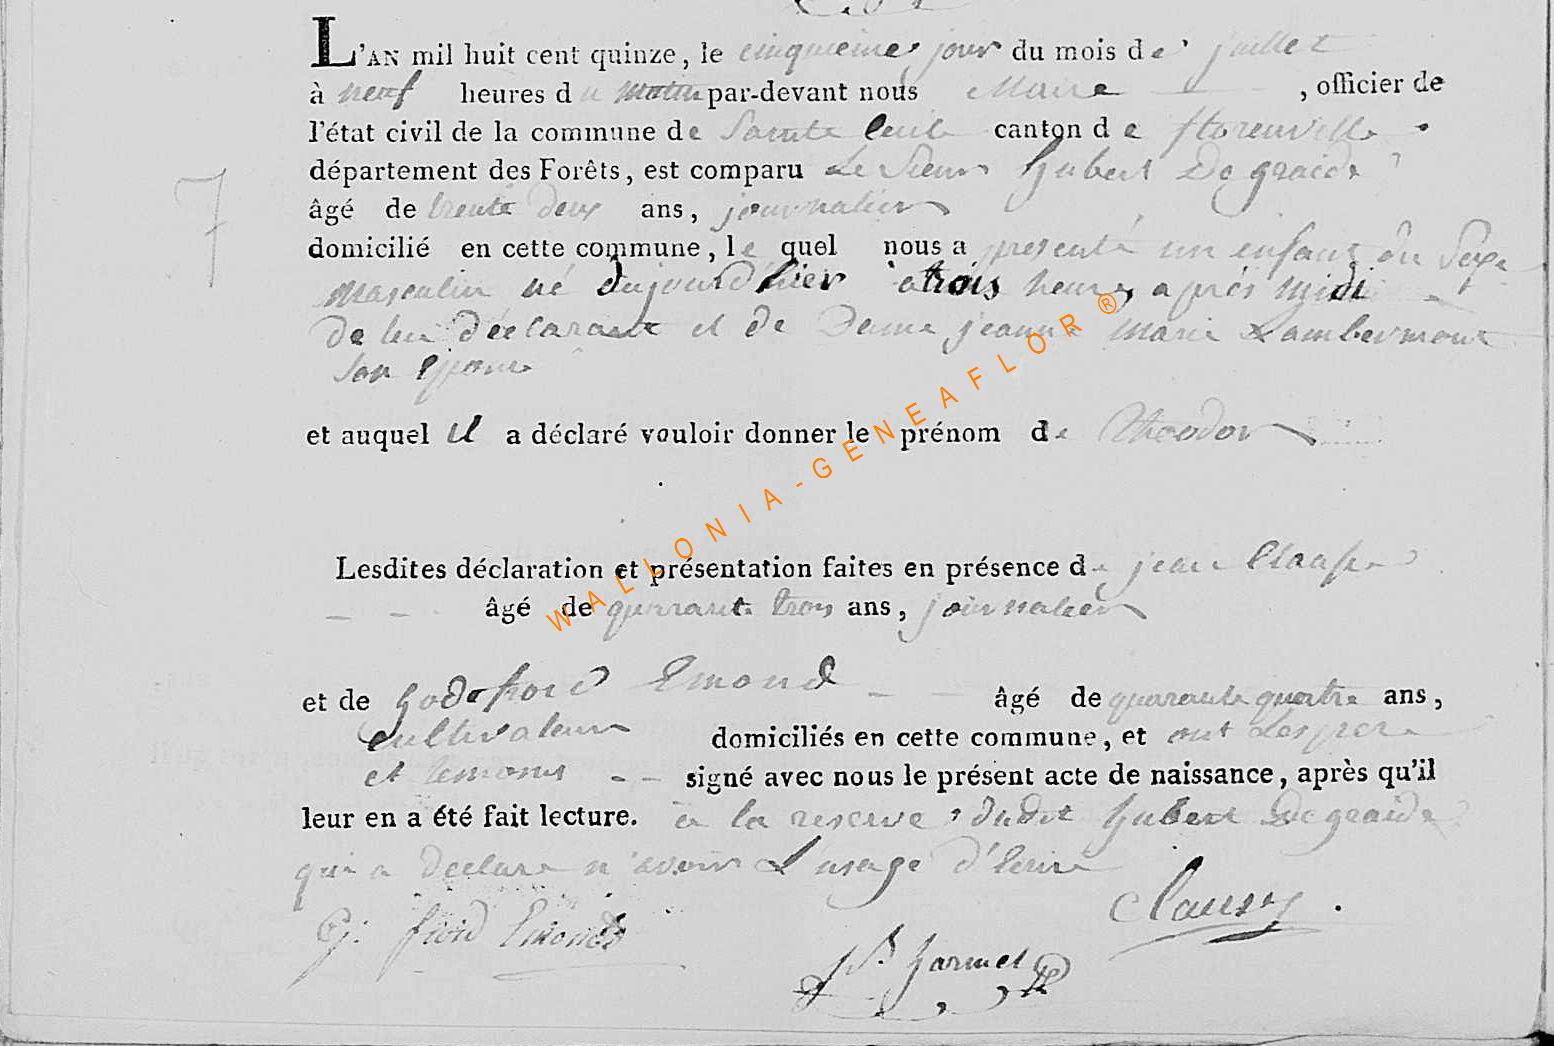 L'AN mil huit cent quinze, le cinquieme jour du mois de juillet
à neuf heures du matin par-devant nous Maire, officier de
l'état civil de la commune de Sainte Cecile canton de florenville
département des Forêts, est comparu Le Sieur hubert Degraide
âgé de trente deux ans, journalier
domicilié en cette commune, le quel nous a presenté un enfant du Sexe
Masculin né aujourd'hier a trois heures après midi
de lui déclarant et de Dame jeanne Marie Lambermont
son Epouse
et auquel il a déclaré vouloir donner le prénom de theodor
Lesdites déclaration et présentation faites en présence de jean
âgé de quarante trois ans, journalier
et de godefroid Emond âgé de quarante quatre ans,
cultivateur domiciliés en cette commune, et ont Les pere
et temoins signé avec nous le présent acte de naissance, après qu'il
leur en a été fait lecture. a la reserve dudit hubert Degraide
qui a declare n'avoir L'usage d'Ecrire
7
WALLONIA-GENEAFLOR ®